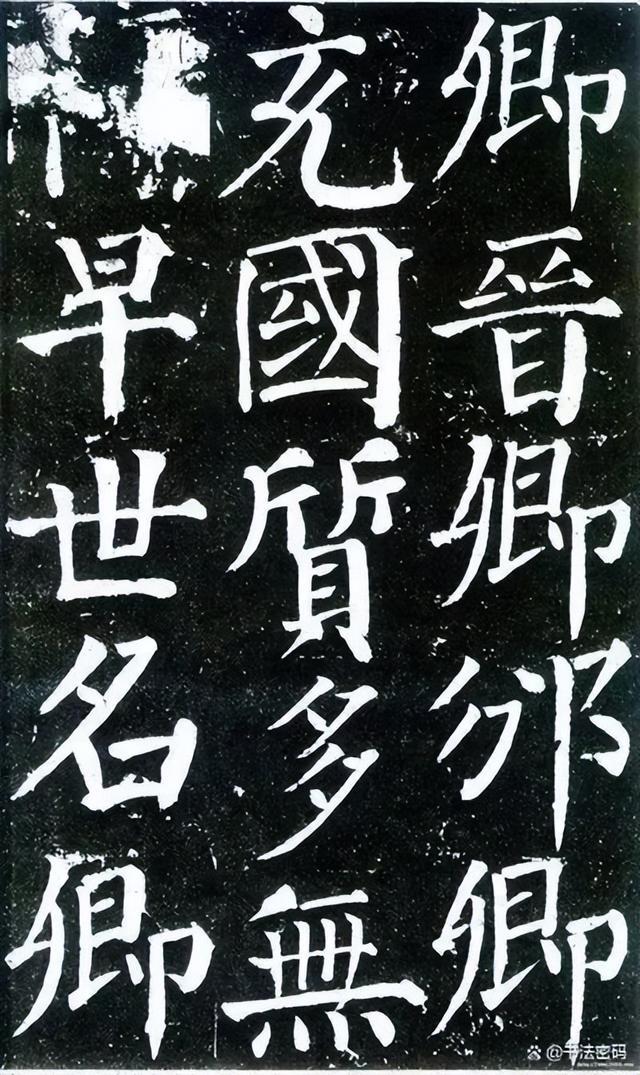 卿晉卿邠卿
充國質多無
早世名卿
@书法密码